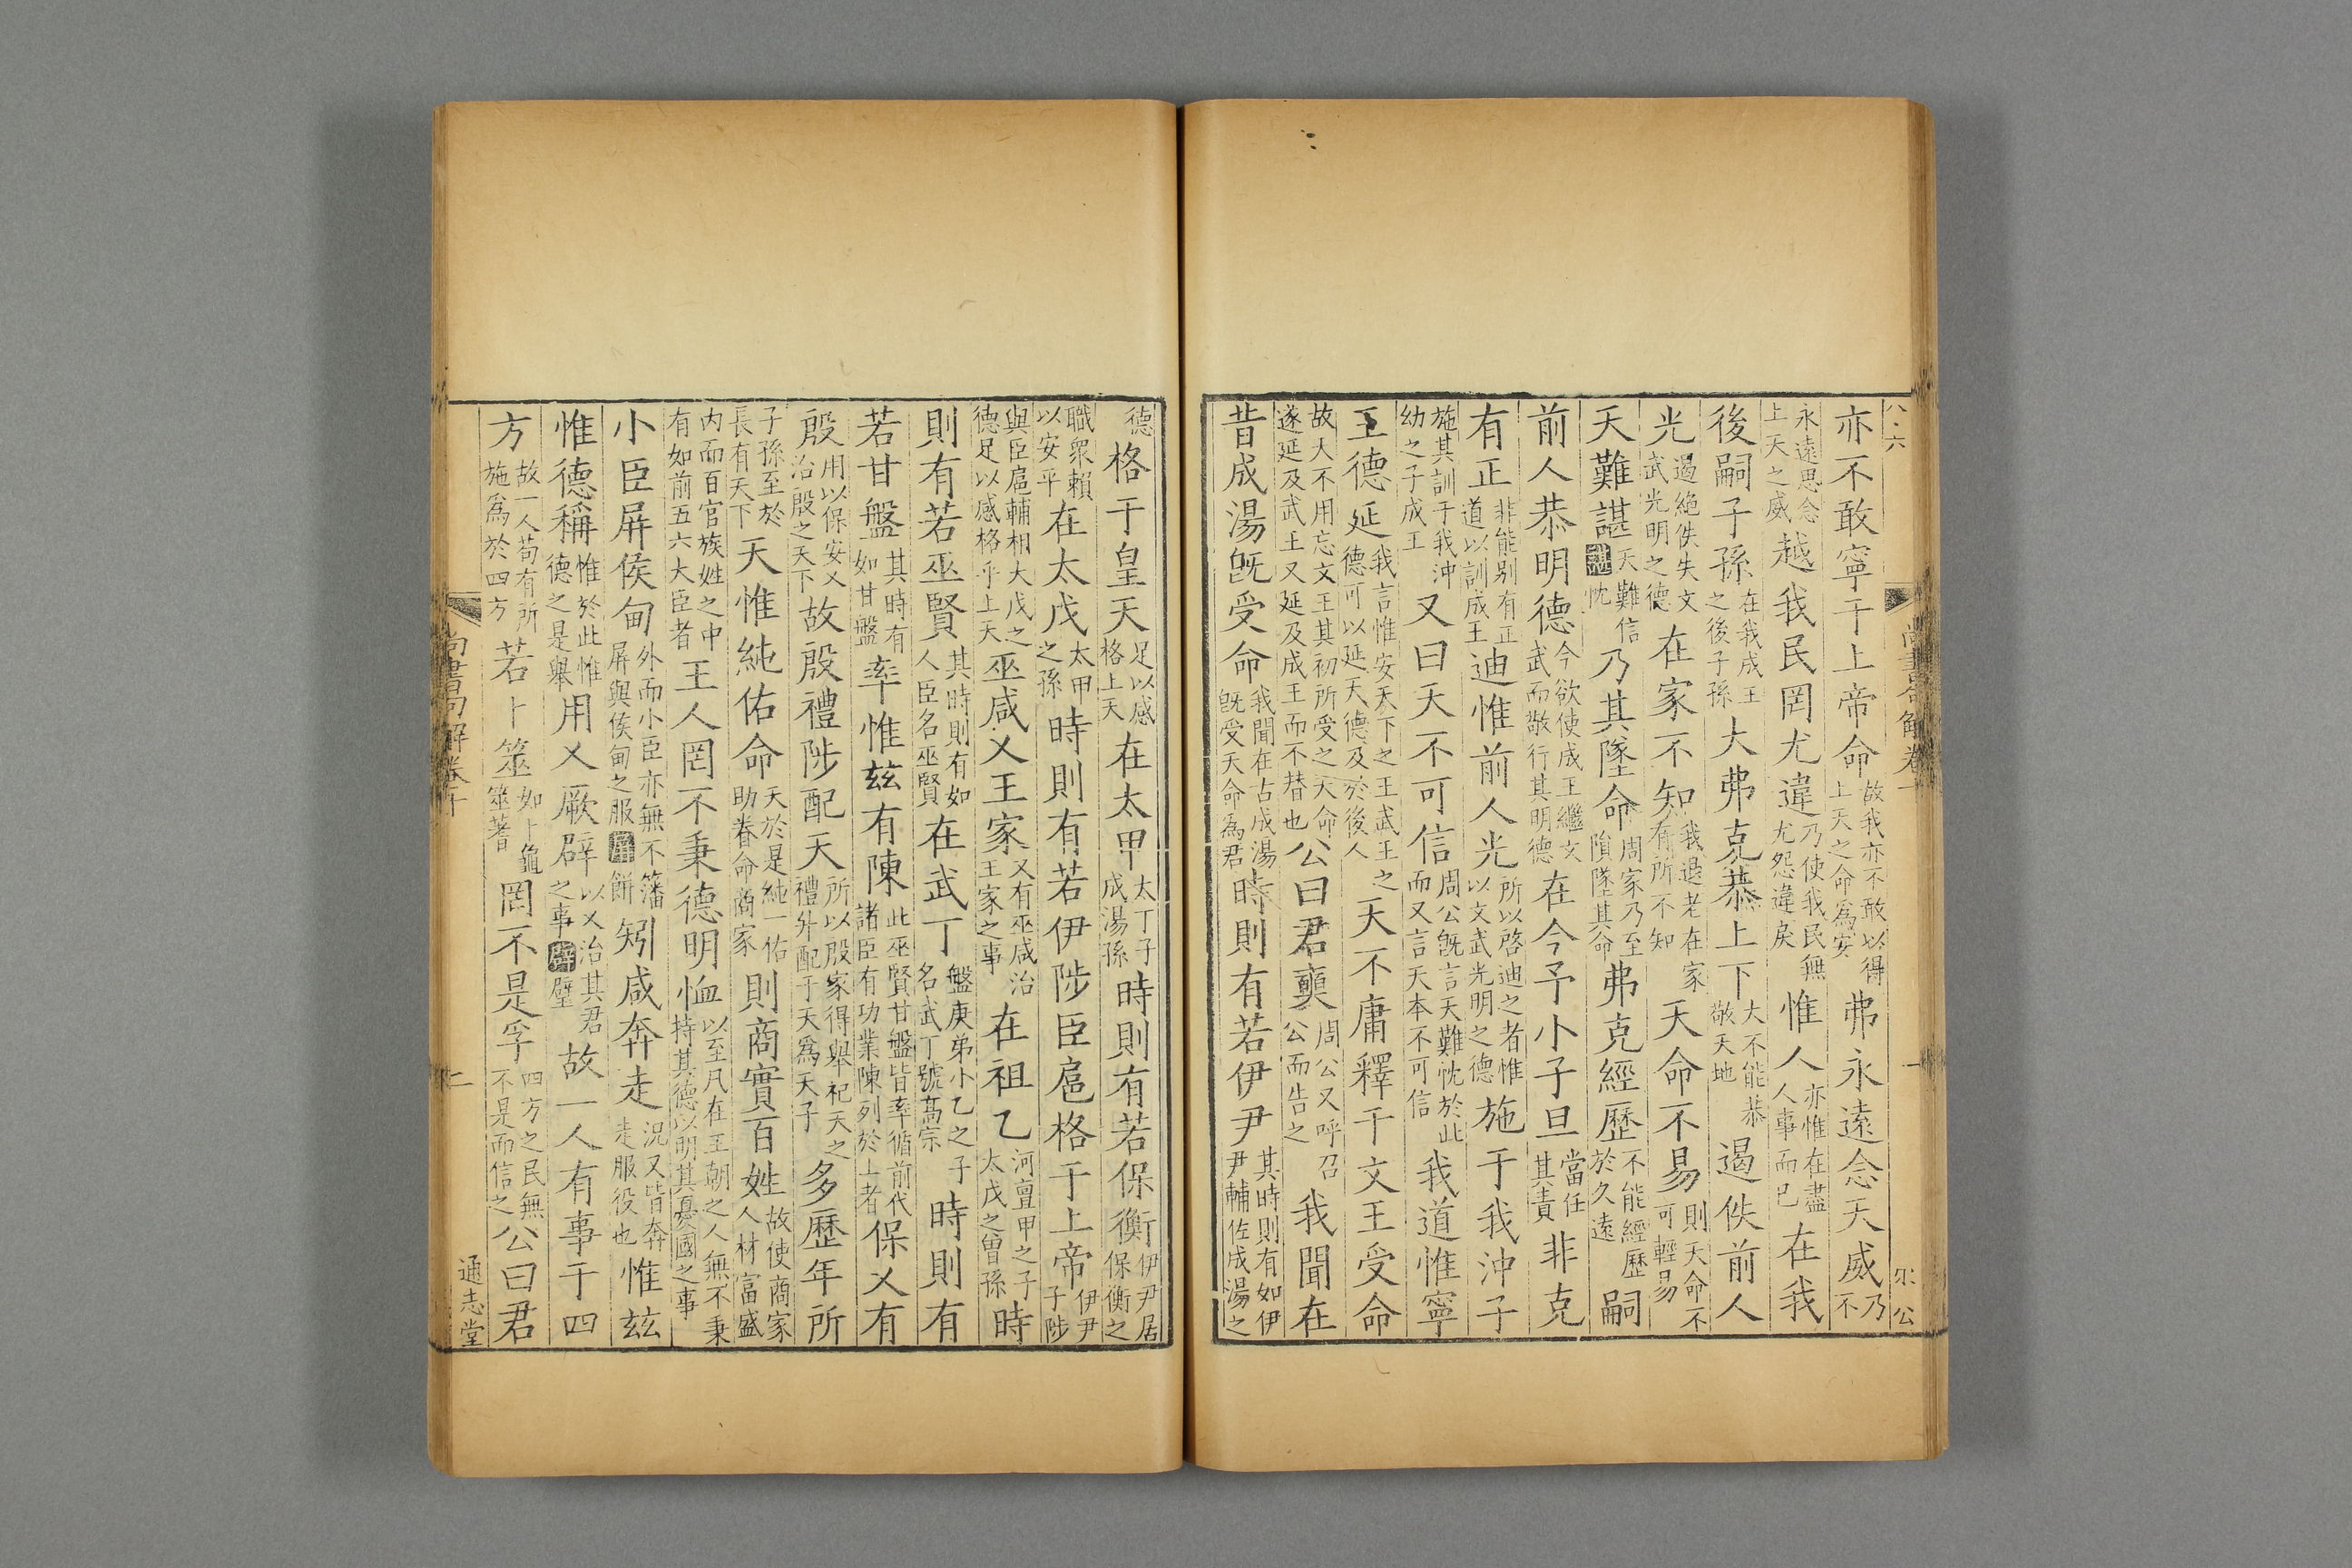 八·六
尚書句解卷十
一
公
亦不敢寧于上帝命故我亦不敢以得上天之命為安弗永遠念天威乃不
永遠思念上天之威越我民罔尤違乃使我民無尤怨違戾惟人亦惟在盡人事而已在我
後嗣子孫在我成王之後子孫大弗克恭上下大不能恭敬天地遏佚前人
光遏絶佚失文武光明之德在家不知我退老在家有所不知天命不易則天命不可輕易
天難諶天難信諶忱乃其墜命周家乃至隕墜其命弗克經歷不能經歷於久遠嗣
前人恭明德今欲使成王繼文武而敬行其明德在今予小子旦當任其責非克
有正非能别有正道以訓成王迪惟前人光所以啓迪之者惟以文武光明之德施于我沖子
施其訓于我沖幼之子成王又曰天不可信周公旣言天難忱於此而又言天本不可信我道惟寧
王德延我言惟安天下之王武王之德可以延天德及於後人天不庸釋于文王受命
故天不用忘文王其初所受之天命遂延及武王又延及成王而不替也公曰君奭周公又呼召公而告之我聞在
昔成湯旣受命我聞在古成湯旣受天命為君時則有若伊尹其時則有如伊尹輔佐成湯之
德格于皇天足以感格上天在太甲太丁子成湯孫時則有若保衡伊尹居保衡之
職衆賴以安平在太戊太甲之孫時則有若伊陟臣扈格于上帝伊尹子陟
與臣扈輔相大戊之德足以感格乎上天巫咸乂王家又有巫咸治王家之事在祖乙河亶甲之子太戊之曽孫時
則有若巫賢其時則有如人臣名巫賢在武丁盤庚弟小乙之子名武丁號髙宗時則有
若甘盤其時有如甘盤率惟兹有陳此巫賢甘盤皆率循前代諸臣有功業陳列於上者保乂有
殷用以保安乂治殷之天下故殷禮陟配天所以殷家得舉祀天之禮外配于天為天子多歷年所
子孫至於長有天下天惟純佑命天於是純一佑助眷命商家則商實百姓故使商家人材富盛
内而百官族姓之中有如前五六大臣者王人罔不秉德明恤以至凡在王朝之人無不秉持其德以明其憂國之事
小臣屏侯甸外而小臣亦無不籓屏與侯甸之服屏餅矧咸奔走況又皆奔走服役也惟兹
惟德稱惟於此惟德之是舉用乂厥辟以乂治其君之事辟璧故一人有事于四
方故一人苟有所施為於四方若卜筮如卜龜筮蓍罔不是孚四方之民無不是而信之公曰君
尚書句解卷十
二
通志堂